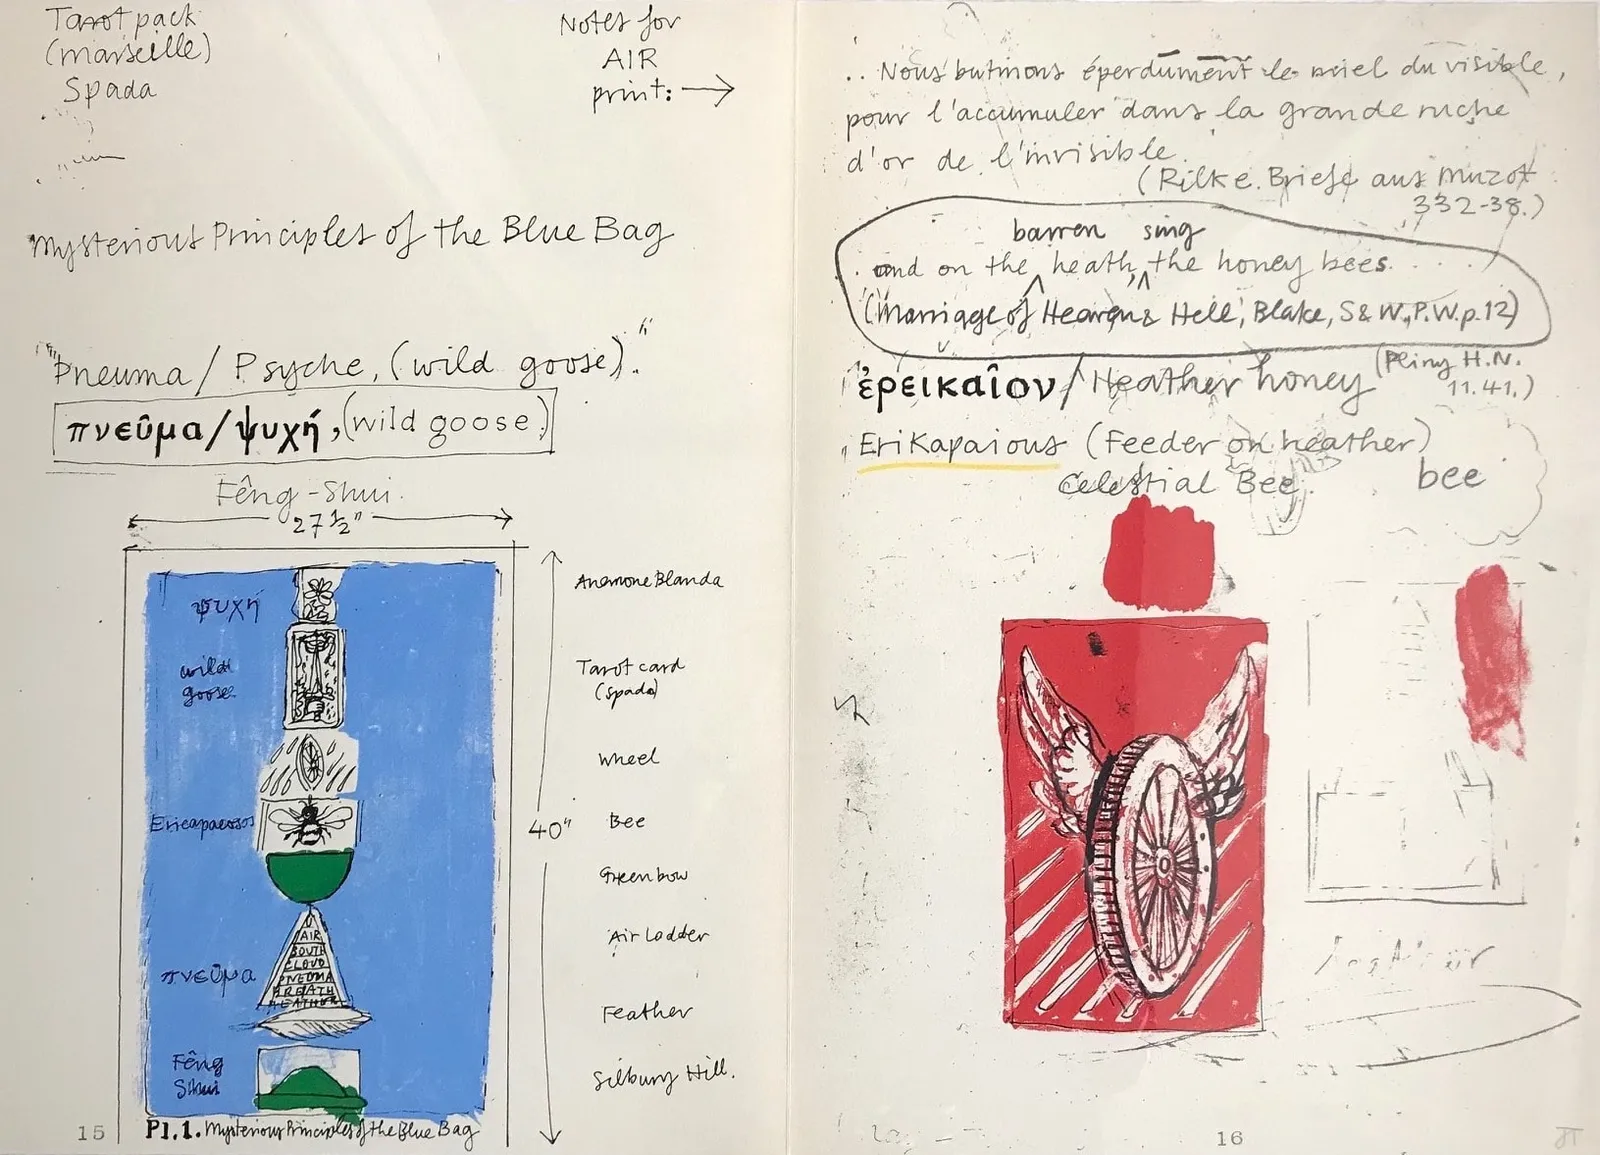 Tarot pack
(marseille)
Spada
Notes for
AIR
print: →
Mysterious Principles of the Blue Bag
"Pneuma/Psyche, (wild goose)."
πνεῦμα/ψυχή, (wild goose)
Fêng-Shui.
27½"
ψυχή
wild
goose
Ericapaeosos
πνεῦμα
AIR
SOUTH
CLOUD
PNEUMA
BREATH
HEATHER
Fêng
Shui
40"
Anemone Blanda
Tarot card
(spada)
Wheel
Bee
Green bow
Air Ladder
Feather
Silbury Hill.
15
Pl.1. Mysterious Principles of the Blue Bag
.. Nous butinons éperdument le miel du visible,
pour l'accumuler dans la grande ruche
d'or de l'invisible.
(Rilke. Briefe aus Muzot
332-38.)
barren sing
and on the heath, the honey bees...
(Marriage of Heaven & Hell, Blake, S&W, P.W. p.12)
ἐρεικαῖον/Heather honey (Pliny H.N.
11.41.)
Erikapaious (Feeder on heather)
Celestial Bee.
bee
16